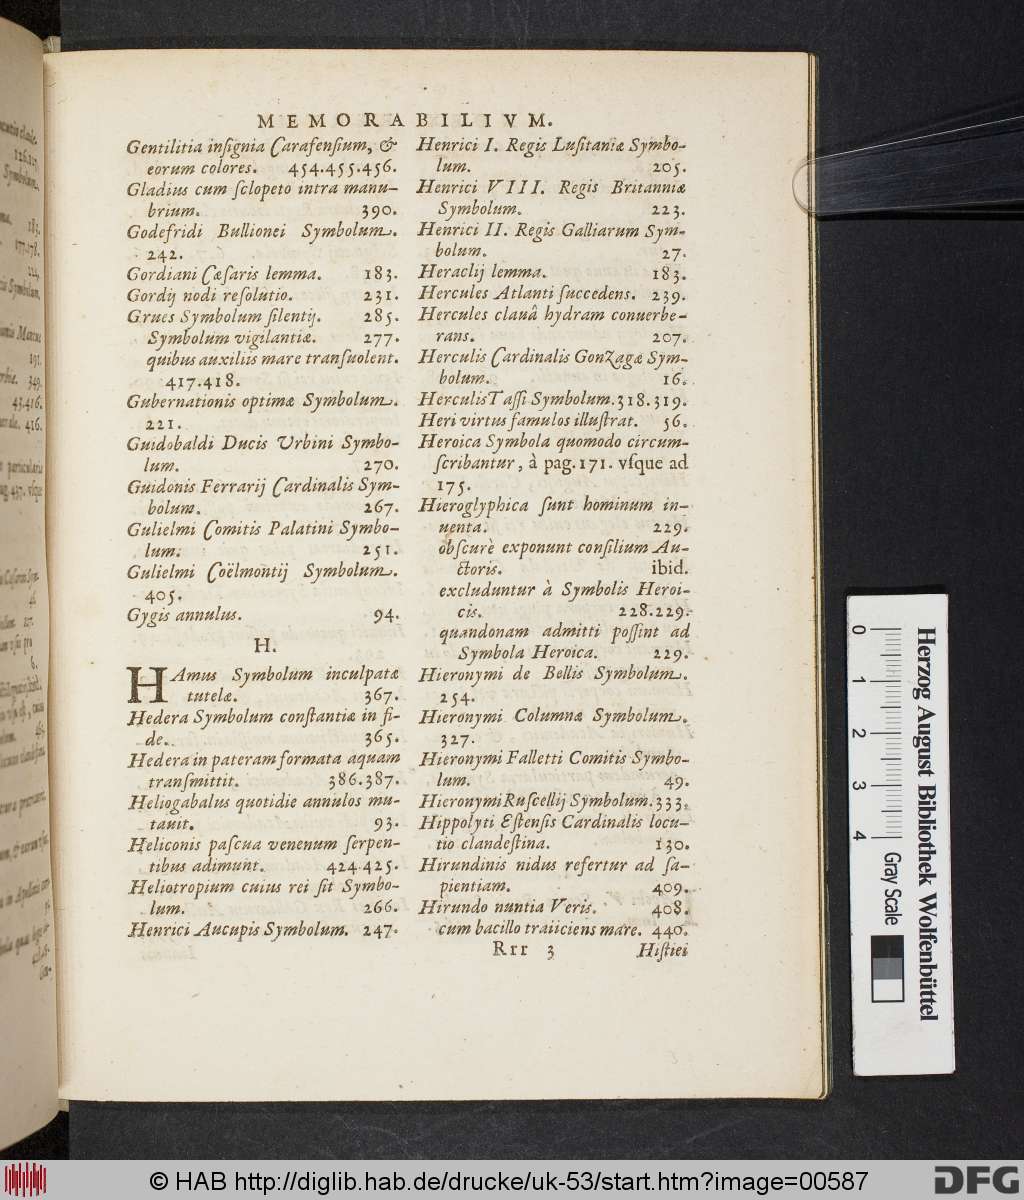 MEMORABILIVM.
Gentilitia inſignia Carafenſium, &
eorum colores. 454.455.456.
Gladius cum ſclopeto intra manu-
brium. 390.
Godefridi Bullionei Symbolum.
242.
Gordiani Cæſaris lemma. 183.
Gordij nodi reſolutio. 231.
Grues Symbolum ſilentij. 285.
Symbolum vigilantiæ. 277.
quibus auxiliis mare tranſuolent.
417.418.
Gubernationis optimæ Symbolum.
221.
Guidobaldi Ducis Vrbini Symbo-
lum. 270.
Guidonis Ferrarij Cardinalis Sym-
bolum. 267.
Gulielmi Comitis Palatini Symbo-
lum. 251.
Gulielmi Coëlmontij Symbolum.
405.
Gygis annulus. 94.
H.
HAmus Symbolum inculpatæ
tutelæ. 367.
Hedera Symbolum conſtantiæ in fi-
de. 365.
Hedera in pateram formata aquam
tranſmittit. 386.387.
Heliogabalus quotidie annulos mu-
tauit. 93.
Heliconis paſcua venenum ſerpen-
tibus adimunt. 424.425.
Heliotropium cuius rei ſit Symbo-
lum. 266.
Henrici Aucupis Symbolum. 247.
Henrici I. Regis Luſitaniæ Symbo-
lum. 205.
Henrici VIII. Regis Britanniæ
Symbolum. 223.
Henrici II. Regis Galliarum Sym-
bolum. 27.
Heraclij lemma. 183.
Hercules Atlanti ſuccedens. 239.
Hercules clauâ hydram conuerbe-
rans. 207.
Herculis Cardinalis Gonzagæ Sym-
bolum. 16.
Herculis Taſſi Symbolum. 318.319.
Heri virtus famulos illuſtrat. 56.
Heroica Symbola quomodo circum-
ſcribantur, à pag. 171. vſque ad
175.
Hieroglyphica ſunt hominum in-
uenta. 229.
obſcurè exponunt conſilium Au-
ctoris. ibid.
excluduntur à Symbolis Heroi-
cis. 228.229.
quandonam admitti poſſint ad
Symbola Heroica. 229.
Hieronymi de Bellis Symbolum.
254.
Hieronymi Columnæ Symbolum.
327.
Hieronymi Falletti Comitis Symbo-
lum. 49.
Hieronymi Ruſcellij Symbolum. 333.
Hippolyti Eſtenſis Cardinalis locu-
tio clandeſtina. 130.
Hirundinis nidus refertur ad ſa-
pientiam. 409.
Hirundo nuntia Veris. 408.
cum bacillo traiiciens mare. 440.
Rrr 3 Hiſtiei
0 1 2 3 4
Herzog August Bibliothek Wolfenbüttel
Gray Scale
© HAB http://diglib.hab.de/drucke/uk-53/start.htm?image=00587
DFG